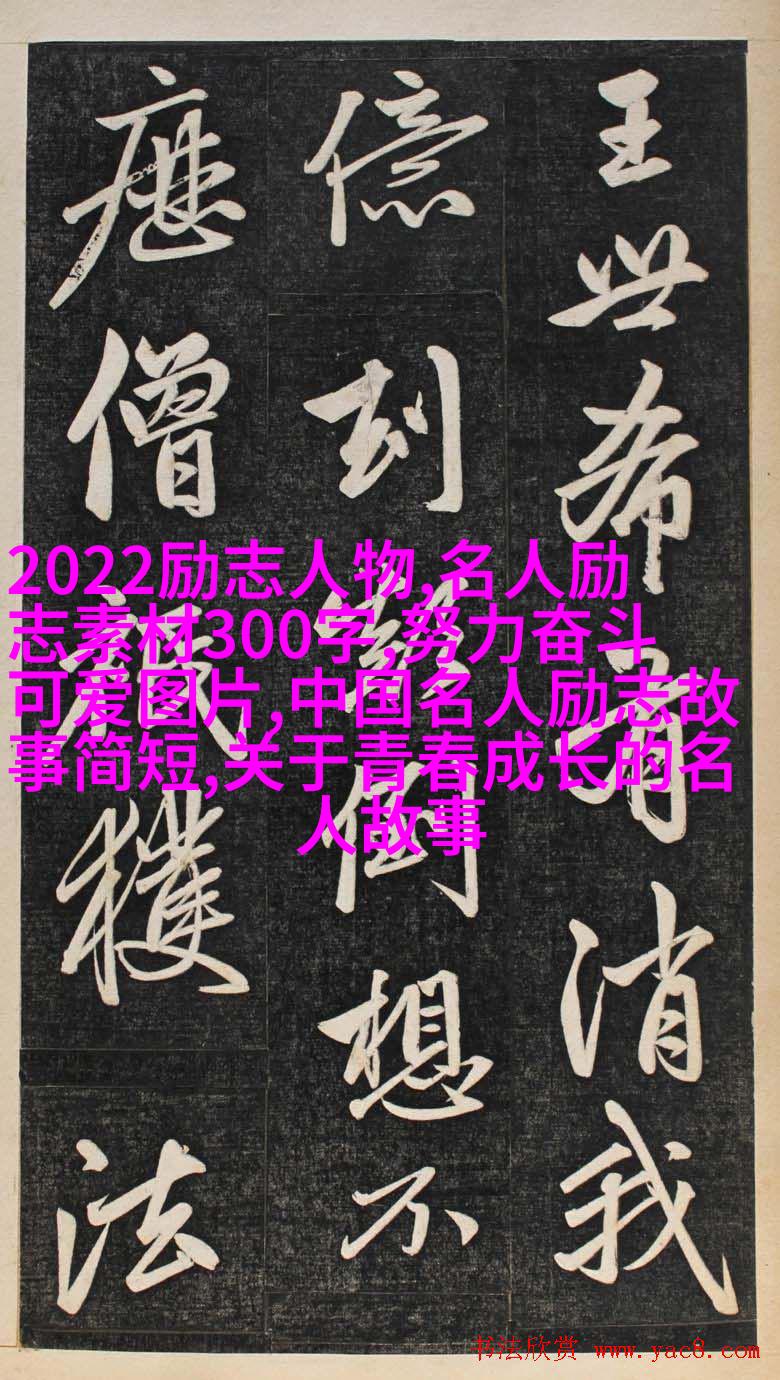 王世希有消我
億刧顛倒想不
歷僧祇穫法
2022励志人物,名人励
志素材300字,努力奋斗
可爱图片,中国名人励志故
事简短,关于青春成长的名
人故事
书法欣赏 www.yac8.com